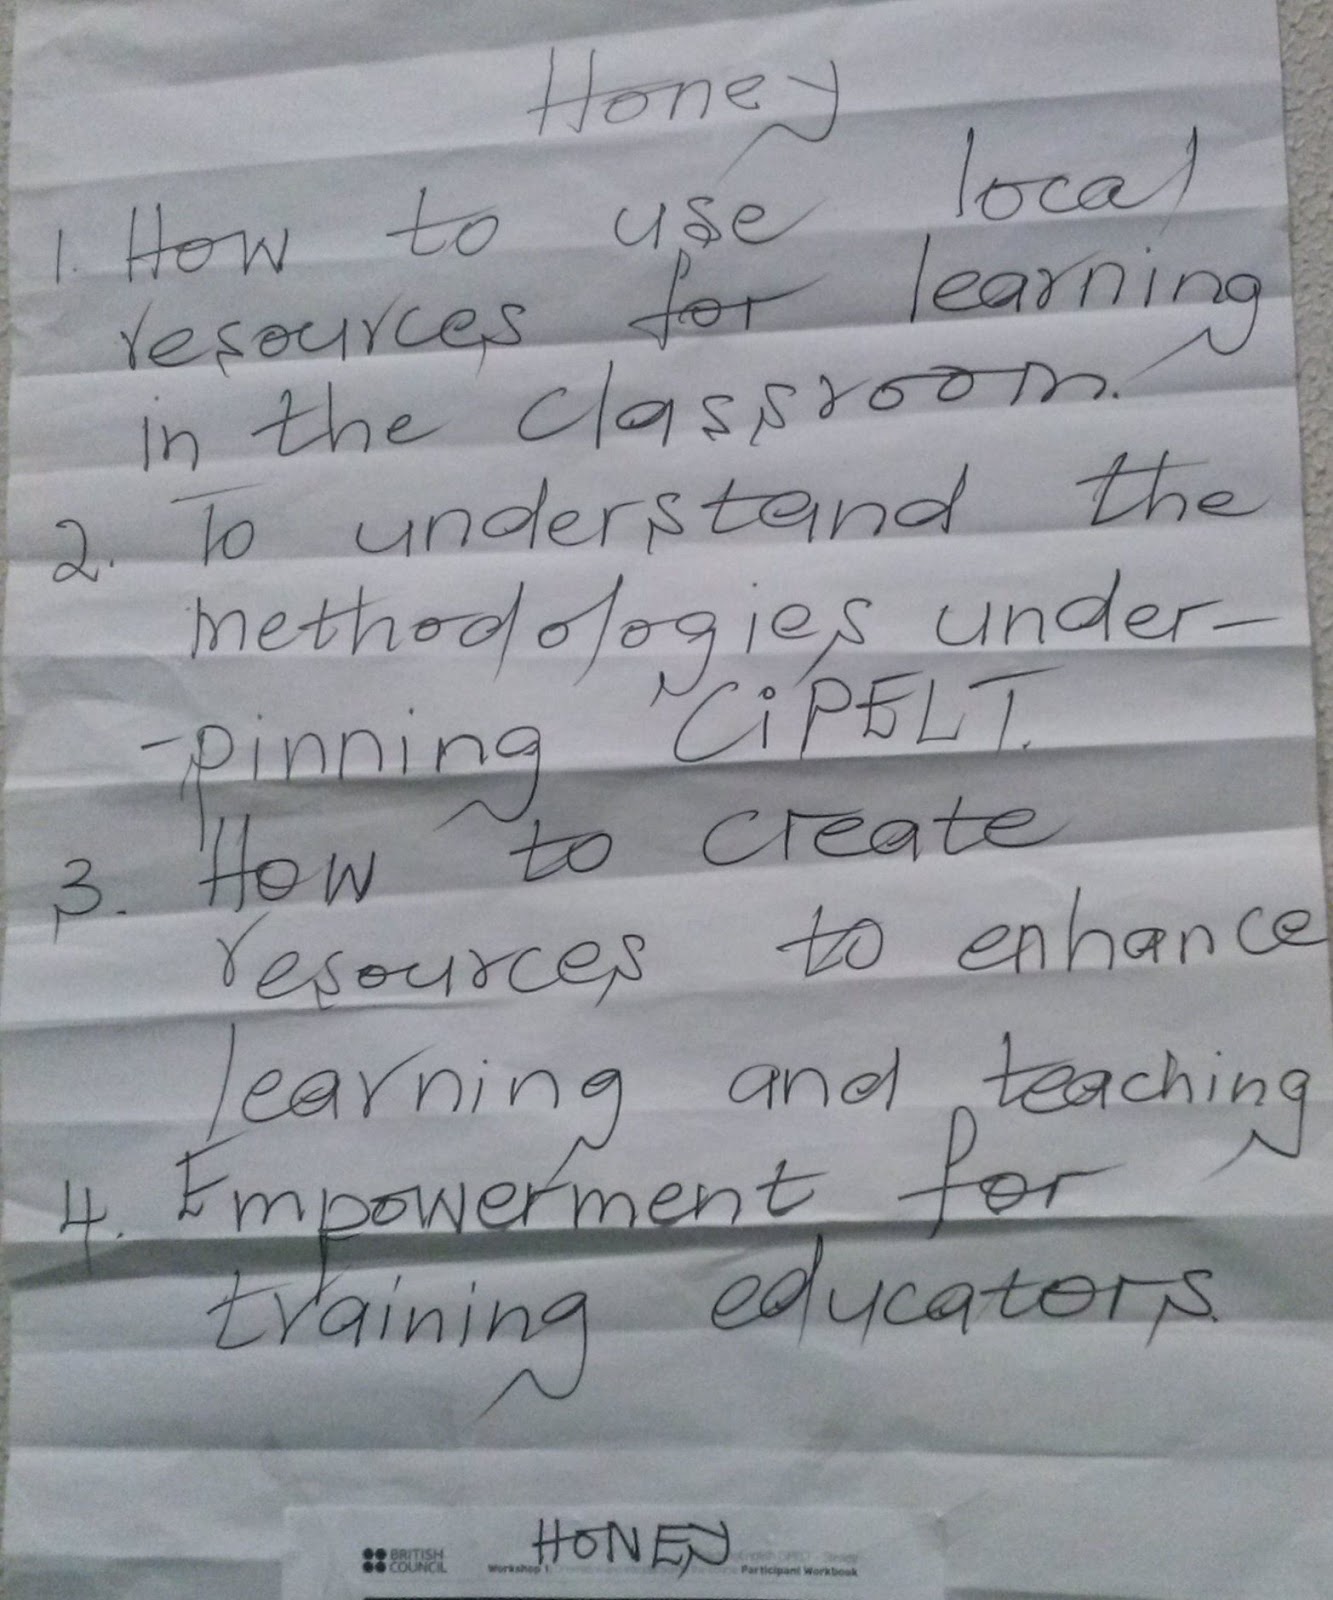 Honey
1. How to use local
resources for learning
in the classroom.
2. To understand the
methodologies under-
-pinning CiPELT.
3. How to create
resources to enhance
learning and teaching
4. Empowerment for
training educators.
HONEY
BRITISH
COUNCIL
Workshop 1 Participant Workbook